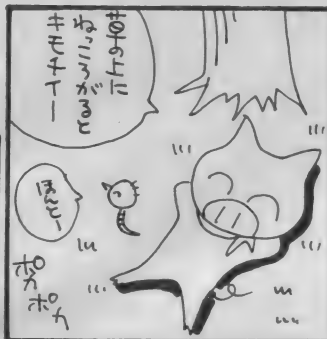 木の下に
ねっころがると
キモチイー
ほんとー
ポカ
ポカ